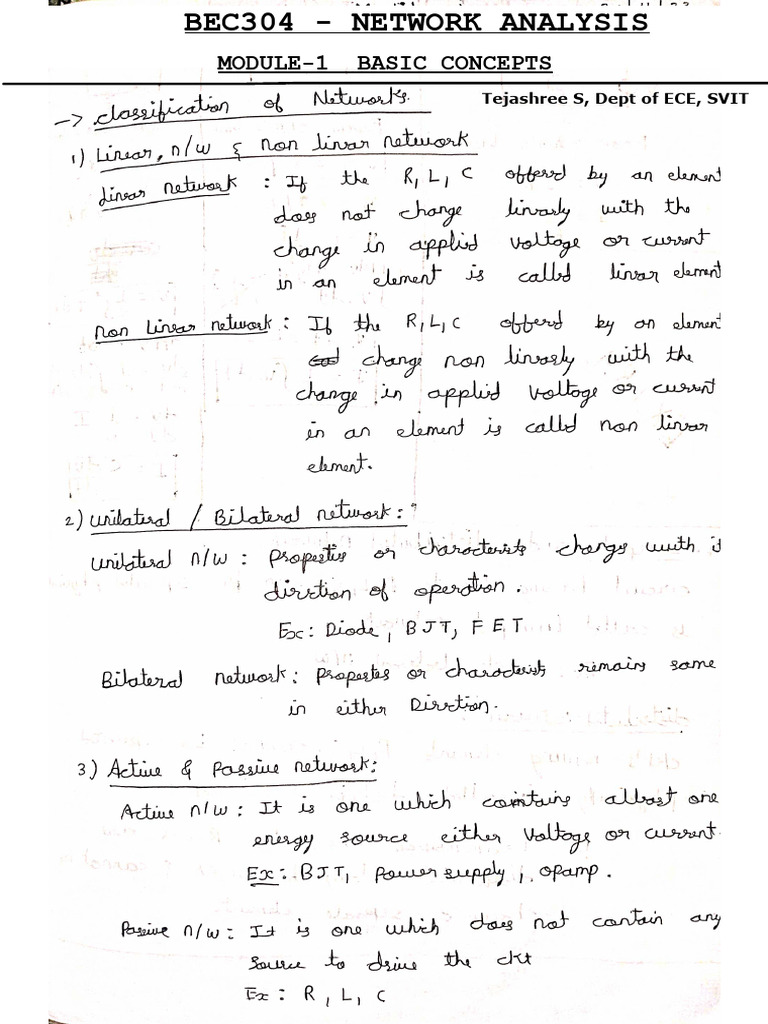 BEC304 - NETWORK ANALYSIS
MODULE-1 BASIC CONCEPTS
Tejashree S, Dept of ECE, SVIT
-> Classification of Networks.
1) Linear, n/w & non linear network
Linear network : If the R, L, C offered by an element
does not change linearly with the
change in applied voltage or current
in an element is called linear element
non linear network : If the R, L, C offered by an element
change non linearly with the
change in applied voltage or current
in an element is called non linear
element.
2) unilateral / Bilateral network :
unilateral n/w : Properties or characterists change with
direction of operation.
Ex : Diode, BJT, FET
Bilateral network : properties or characterists remains same
in either Direction.
3) Active & Passive network :
Active n/w : It is one which contains atleast one
energy source either voltage or current.
Ex : BJT, power supply, opamp.
Passive n/w : It is one which does not contain any
source to drive the ckt
Ex : R, L, C